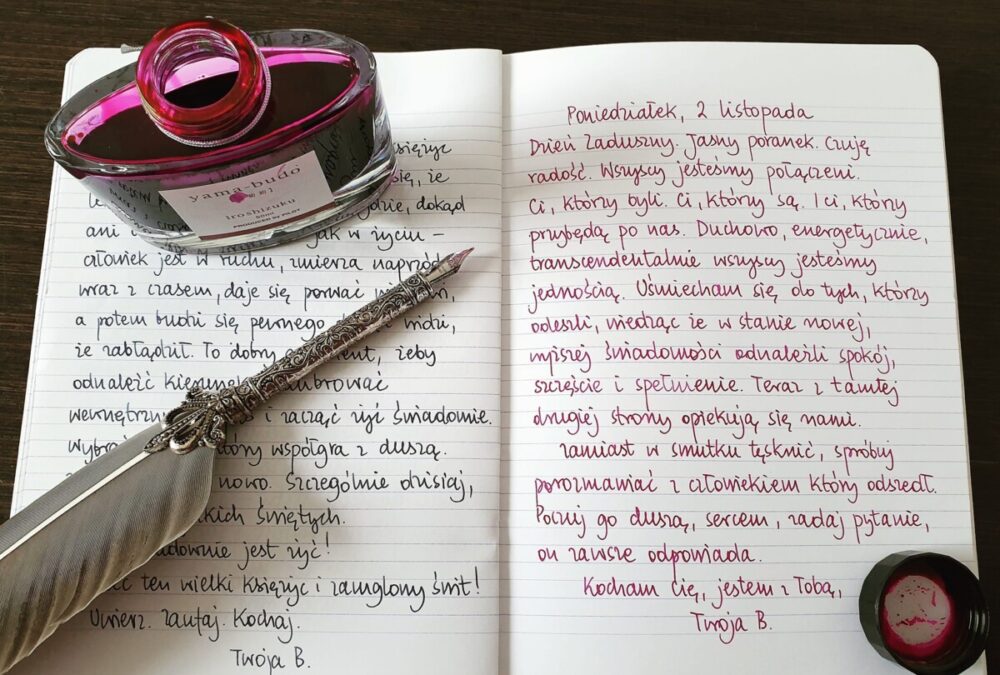 yama-budo
iroshizuku
PRODUCED BY PILOT
księżyc
się, że
gdzie, dokąd
ani jak w życiu –
człowiek jest w ruchu, zmierza naprzód
wraz z czasem, daje się porwać
a potem budzi się pewnego widzi,
że zabłądził. To dobry żeby
odnaleźć
i zacząć żyć świadomie.
współgra z duszą.
nowo. Szczególnie dzisiaj,
świętych.
jest żyć!
ten wielki księżyc i zamglony świt!
Uwierz. Zaufaj. Kochaj.
Twoja B.
Poniedziałek, 2 listopada
Dzień Zaduszny. Jasny poranek. Czuję
radość. Wszyscy jesteśmy połączeni.
Ci, którzy byli. Ci, którzy są. I ci, którzy
przybędą po nas. Duchowo, energetycznie,
transcendentalnie wszyscy jesteśmy
jednością. Uśmiecham się do tych, którzy
odeszli, wiedząc że w stanie nowej,
wyższej świadomości odnaleźli spokój,
szczęście i spełnienie. Teraz z tamtej
drugiej strony opiekują się nami.
Zamiast w smutku tęsknić, spróbuj
porozmawiać z człowiekiem który odszedł.
Poczuj go duszą, sercem, zadaj pytanie,
on zawsze odpowiada.
Kocham Cię, jestem z Tobą,
Twoja B.